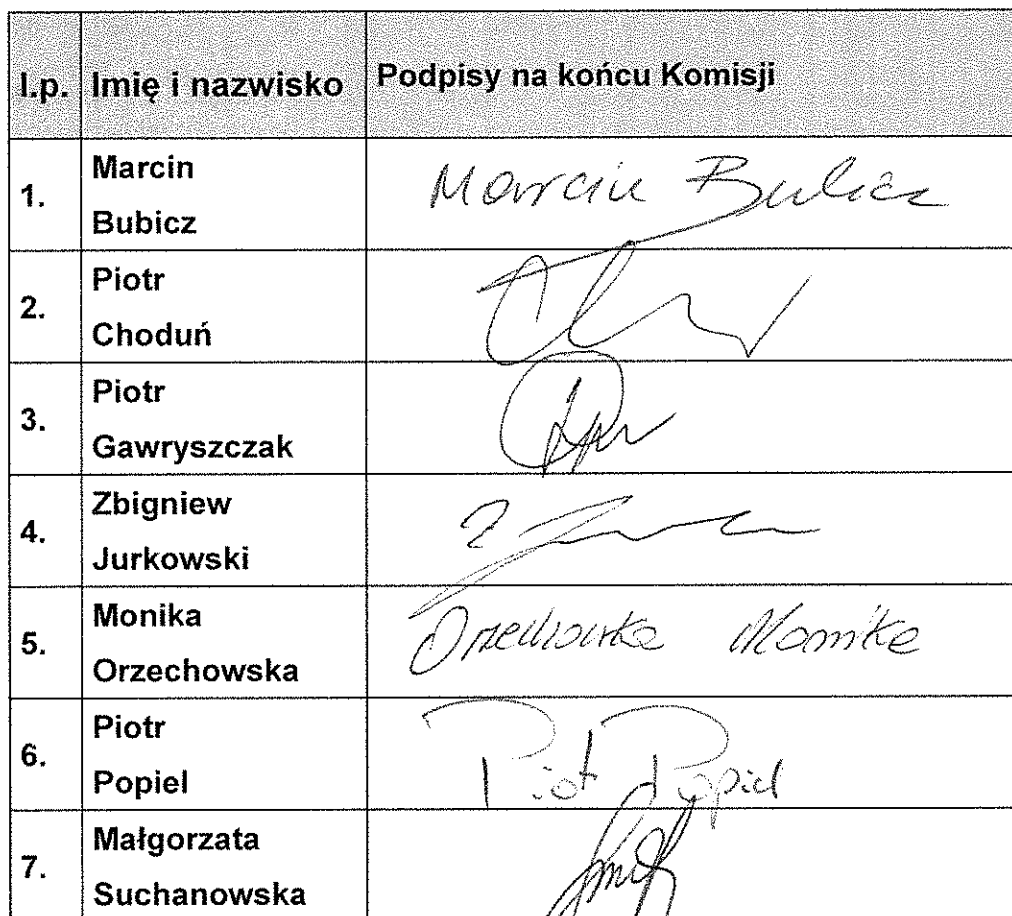 l.p. Imię i nazwisko Podpisy na końcu Komisji
1. Marcin Bubicz Marcin Bubicz
2. Piotr Choduń
3. Piotr Gawryszczak
4. Zbigniew Jurkowski
5. Monika Orzechowska Orzechowska Monika
6. Piotr Popiel Piotr Popiel
7. Małgorzata Suchanowska